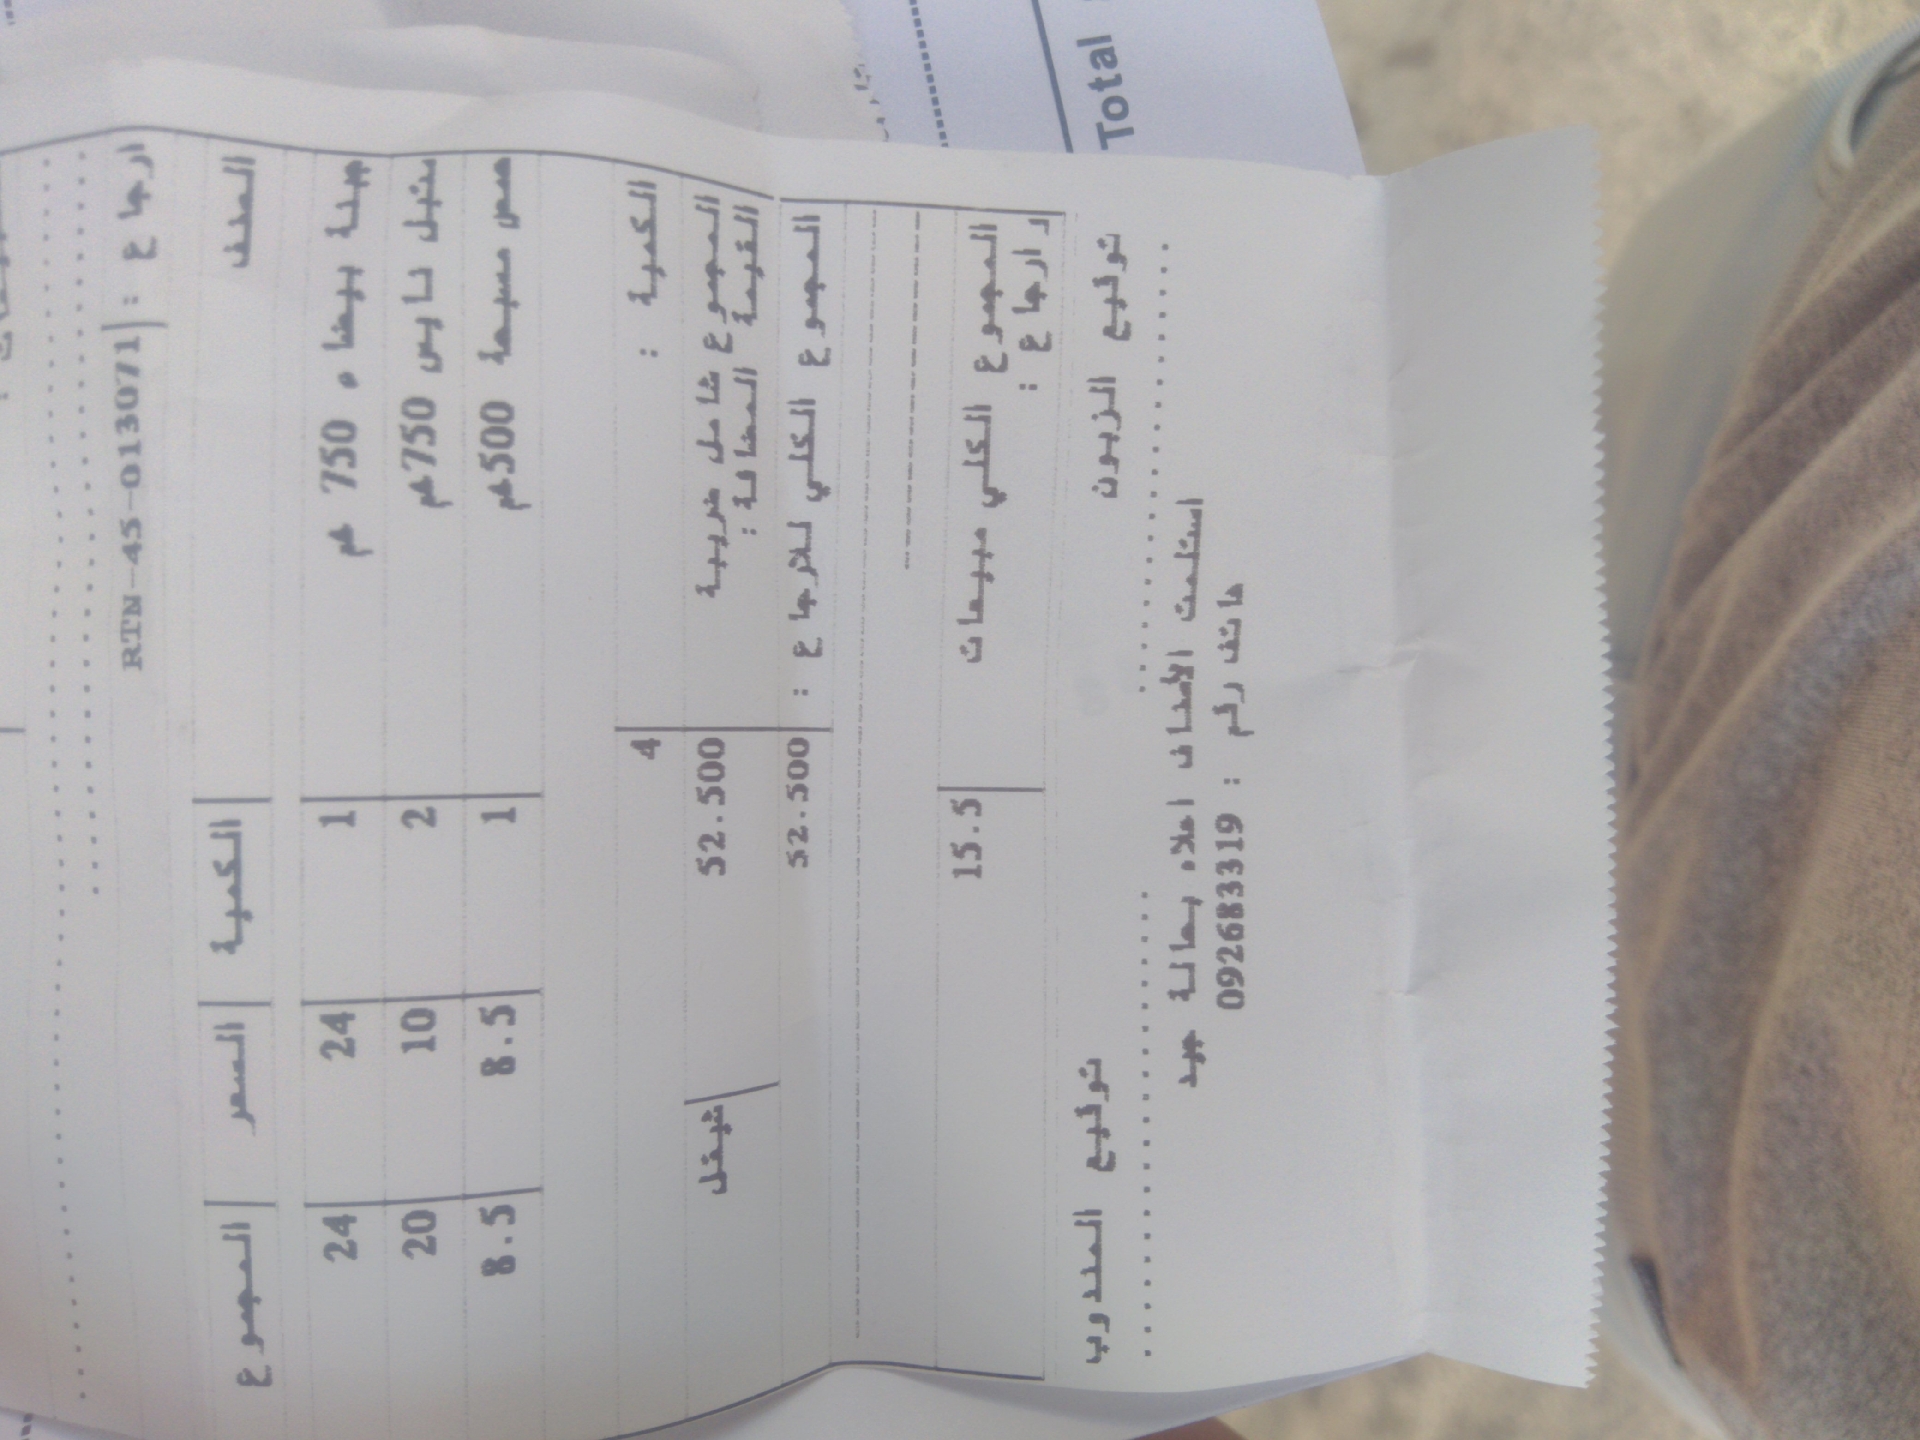 ارجاع : RTN-45-013071
الصنف الكمية السعر المجموع
جبنة بيضاء 750 غم 1 24 24
متبل نايس 750غم 2 10 20
حمص مسبحة 500غم 1 8.5 8.5
الكمية : 4
المجموع شامل ضريبة القيمة المضافة : 52.500 شيقل
المجموع الكلي للارجاع : 52.500
المجموع الكلي مبيعات و ارجاع : 15.5
توقيع الزبون توقيع المندوب
استلمت الأصناف اعلاه بحالة جيد
هاتف رقم : 092683319
Total